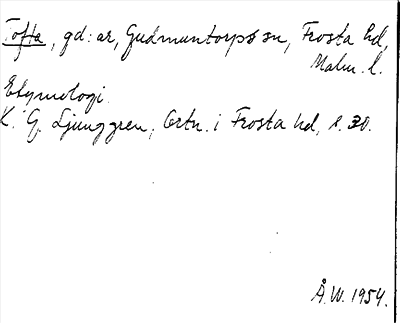 Tofta, gd:ar, Gudmuntorps sn, Frosta hd,
Malm. l.
Etymologi
K. G. Ljunggren, Ortn. i Frosta hd, s. 30.
Å.W. 1954.